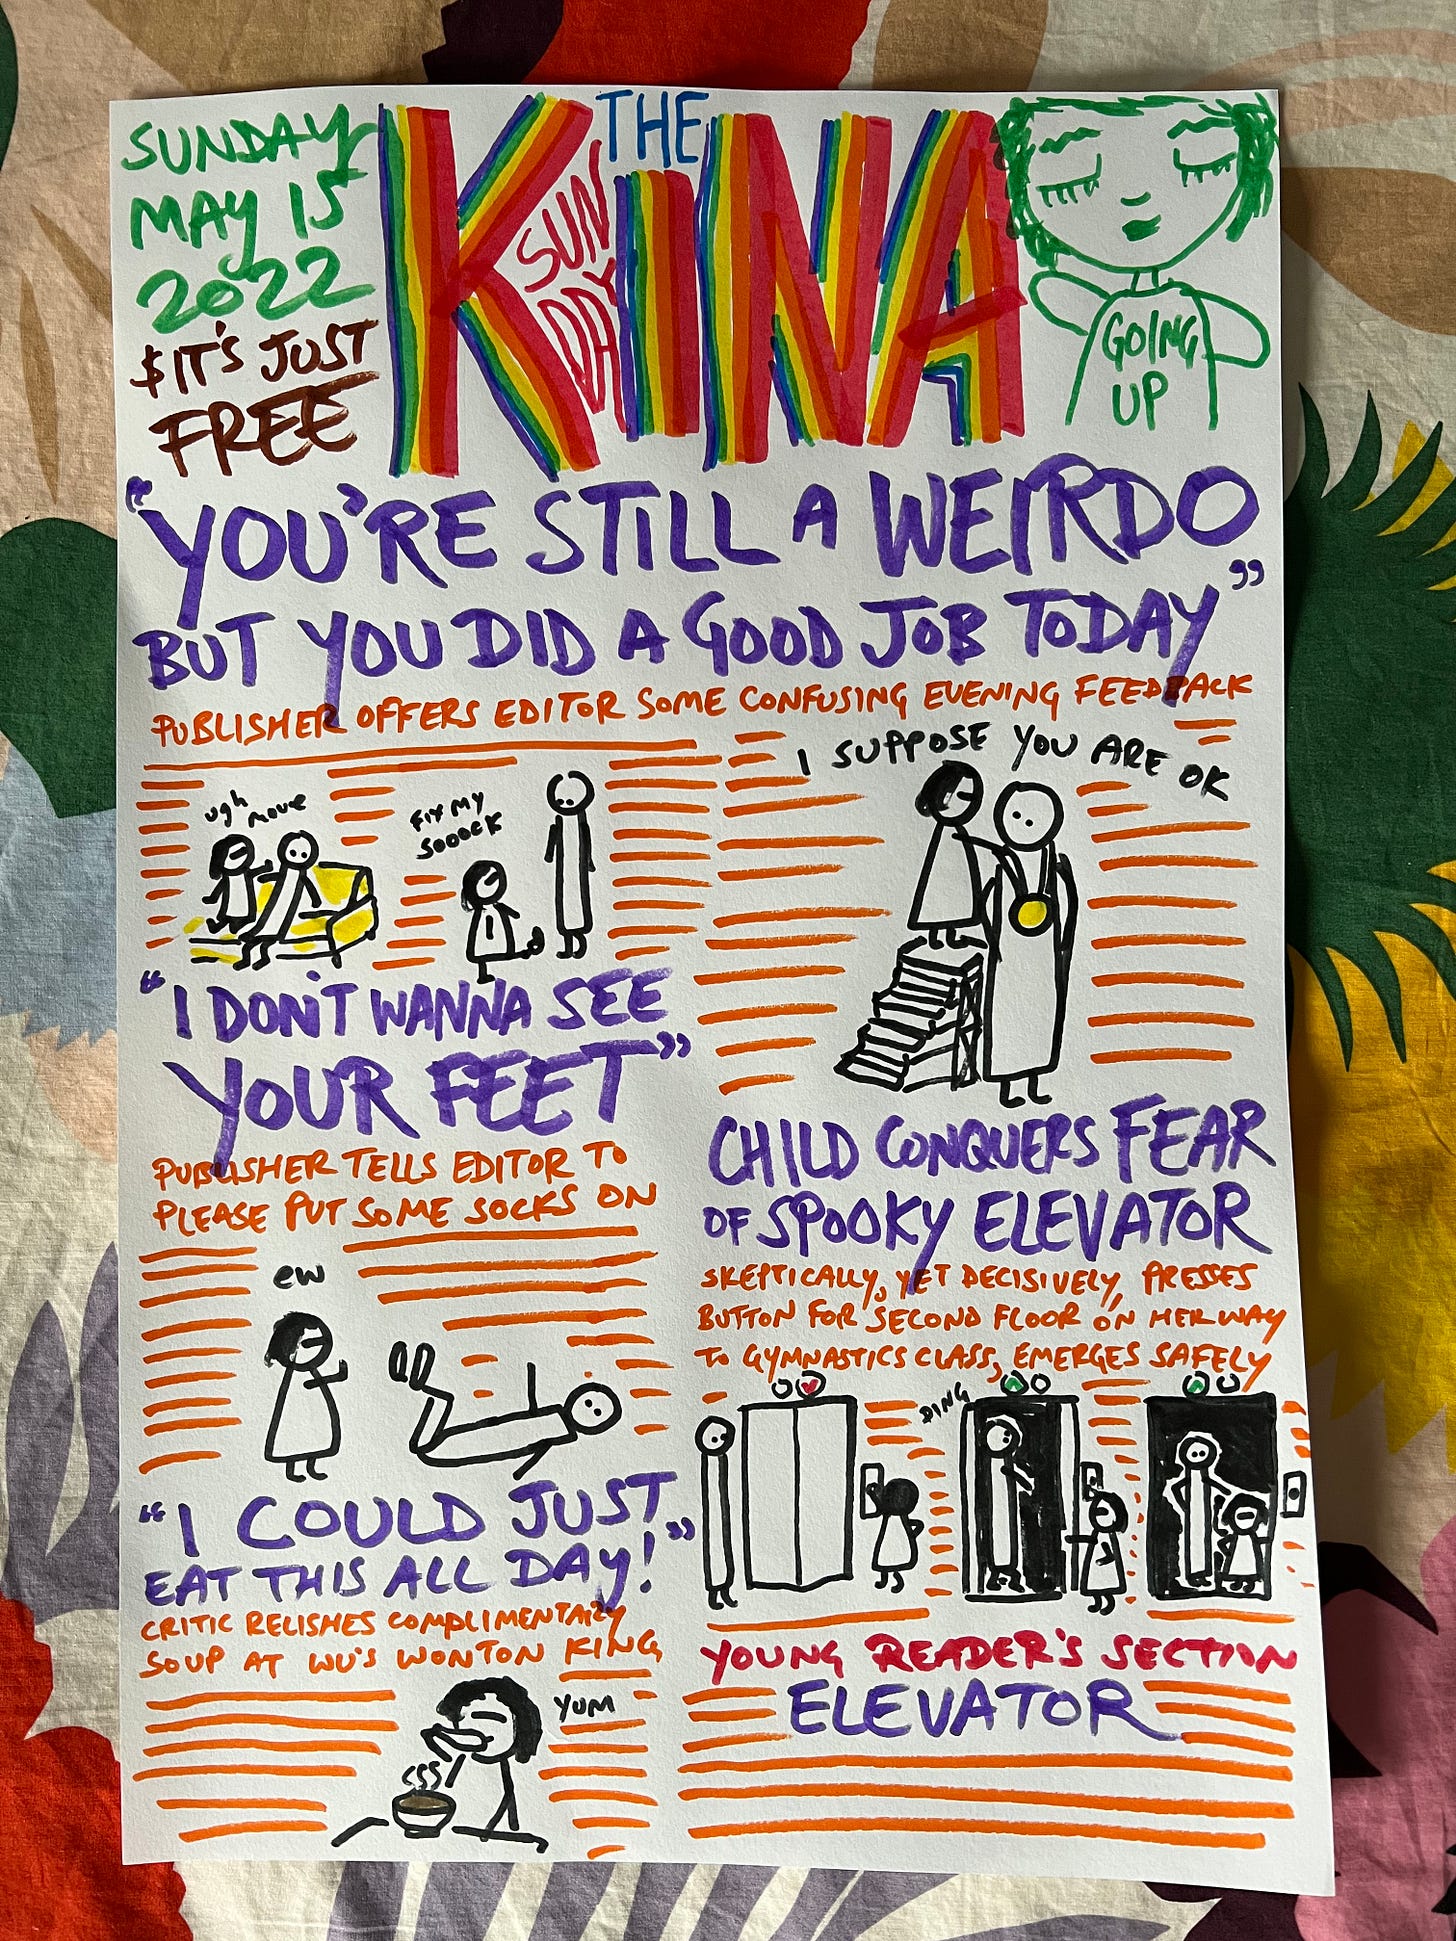 SUNDAY
MAY 15
2022
$IT'S JUST
FREE
THE
KINA
SUN
DAY
GOING
UP
"YOU'RE STILL A WEIRDO
BUT YOU DID A GOOD JOB TODAY"
PUBLISHER OFFERS EDITOR SOME CONFUSING EVENING FEEDBACK
ugh move
FIX MY
SOOOCK
"I DON'T WANNA SEE
YOUR FEET"
PUBLISHER TELLS EDITOR TO
PLEASE PUT SOME SOCKS ON
ew
"I COULD JUST
EAT THIS ALL DAY!"
CRITIC RELISHES COMPLIMENTARY
SOUP AT WU'S WONTON KING
YUM
I SUPPOSE YOU ARE OK
CHILD CONQUERS FEAR
OF SPOOKY ELEVATOR
SKEPTICALLY, YET DECISIVELY, PRESSES
BUTTON FOR SECOND FLOOR ON HER WAY
TO GYMNASTICS CLASS, EMERGES SAFELY
DING
YOUNG READER'S SECTION
ELEVATOR